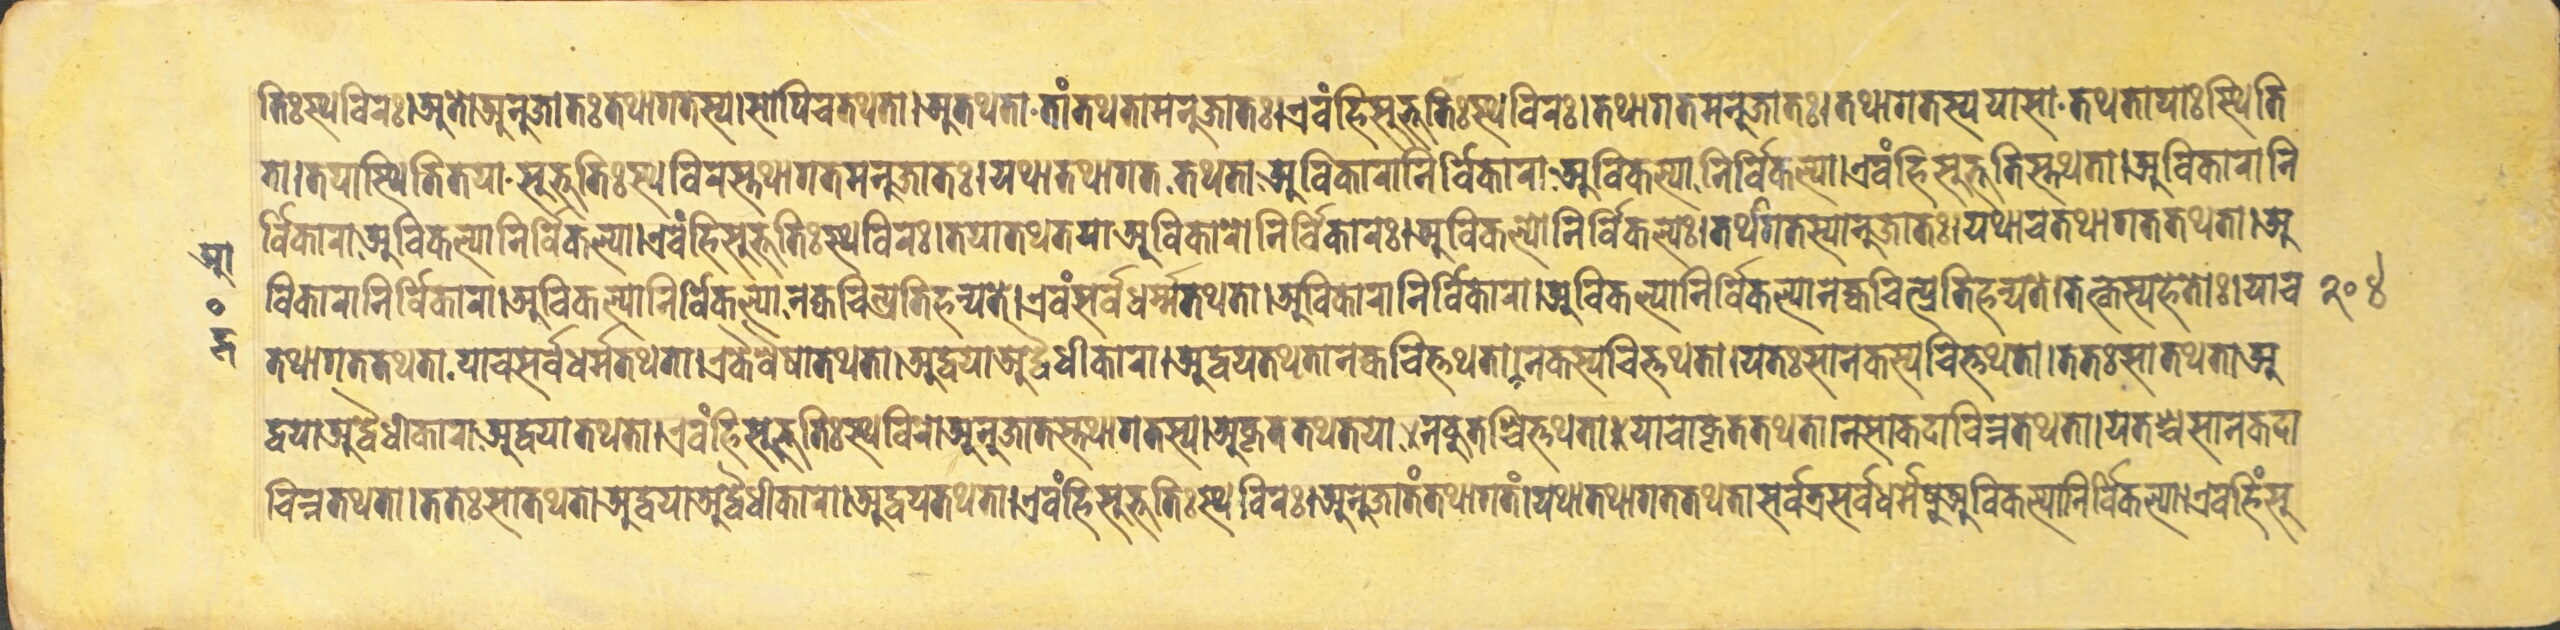 तिःस्थविरः।अतो।अनुजातःतथागतस्य।सापिचतथता।अतथता॰तांतथतामनुजातः।एवंहिसुभूतिःस्थविरः।तथागतमनुजातः।तथागतस्ययासा॰तथतायाःस्थिति
ता।तयास्थितितया॰सुभूतिःस्थविरस्तथागतमनुजातः।यथातथागत॰तथता।अविकारानिर्विकारा।अविकल्पानिर्विकल्पा।एवंहिसुभूतिस्तथता।अविकारानि
र्विकारा।अविकल्पानिर्विकल्पा।एवंहिसुभूतिःस्थविरः।तयातथतया।अविकारोनिर्विकारः।अविकल्पोनिर्विकल्पः।तथागतस्यानुजातः।यथाचतथागततथता।अ
विकारानिर्विकारा।अविकल्पानिर्विकल्पानक्वचित्प्रतिहन्यते।एवंसर्वधर्म्मतथता।अविकारानिर्विकारा।अविकल्पानिर्विकल्पानक्वचित्प्रतिहन्यते।तत्कस्यहेतोः।याच
तथागततथता॰याचसर्वधर्मतथता।एकैवैषातथता।अद्वयाअद्वैधीकारा।अद्वयतथतानक्वचित्तथता।नकस्यचित्तथता।यतःसानकस्यचित्तथता।ततःसातथता।अ
द्वया।अद्वैधीकारा।अद्वयातथता।एवंहिसुभूतिःस्थविरो।अनुजातस्तथागतस्य।अकृततथतया।नकुतश्चित्तथता।याचाकृततथता।नसाकदाचिन्नतथता।यतश्चसानकदा
चिन्नतथता।ततःसातथता।अद्वयाअद्वैधीकारा।अद्वयतथता।एवंहिसुभूतिःस्थविरः।अनुजातंतथागतं।यथातथागततथतासर्वत्रसर्वधर्मेषुअविकल्पानिर्विकल्पा।एवहिंसु
२०४